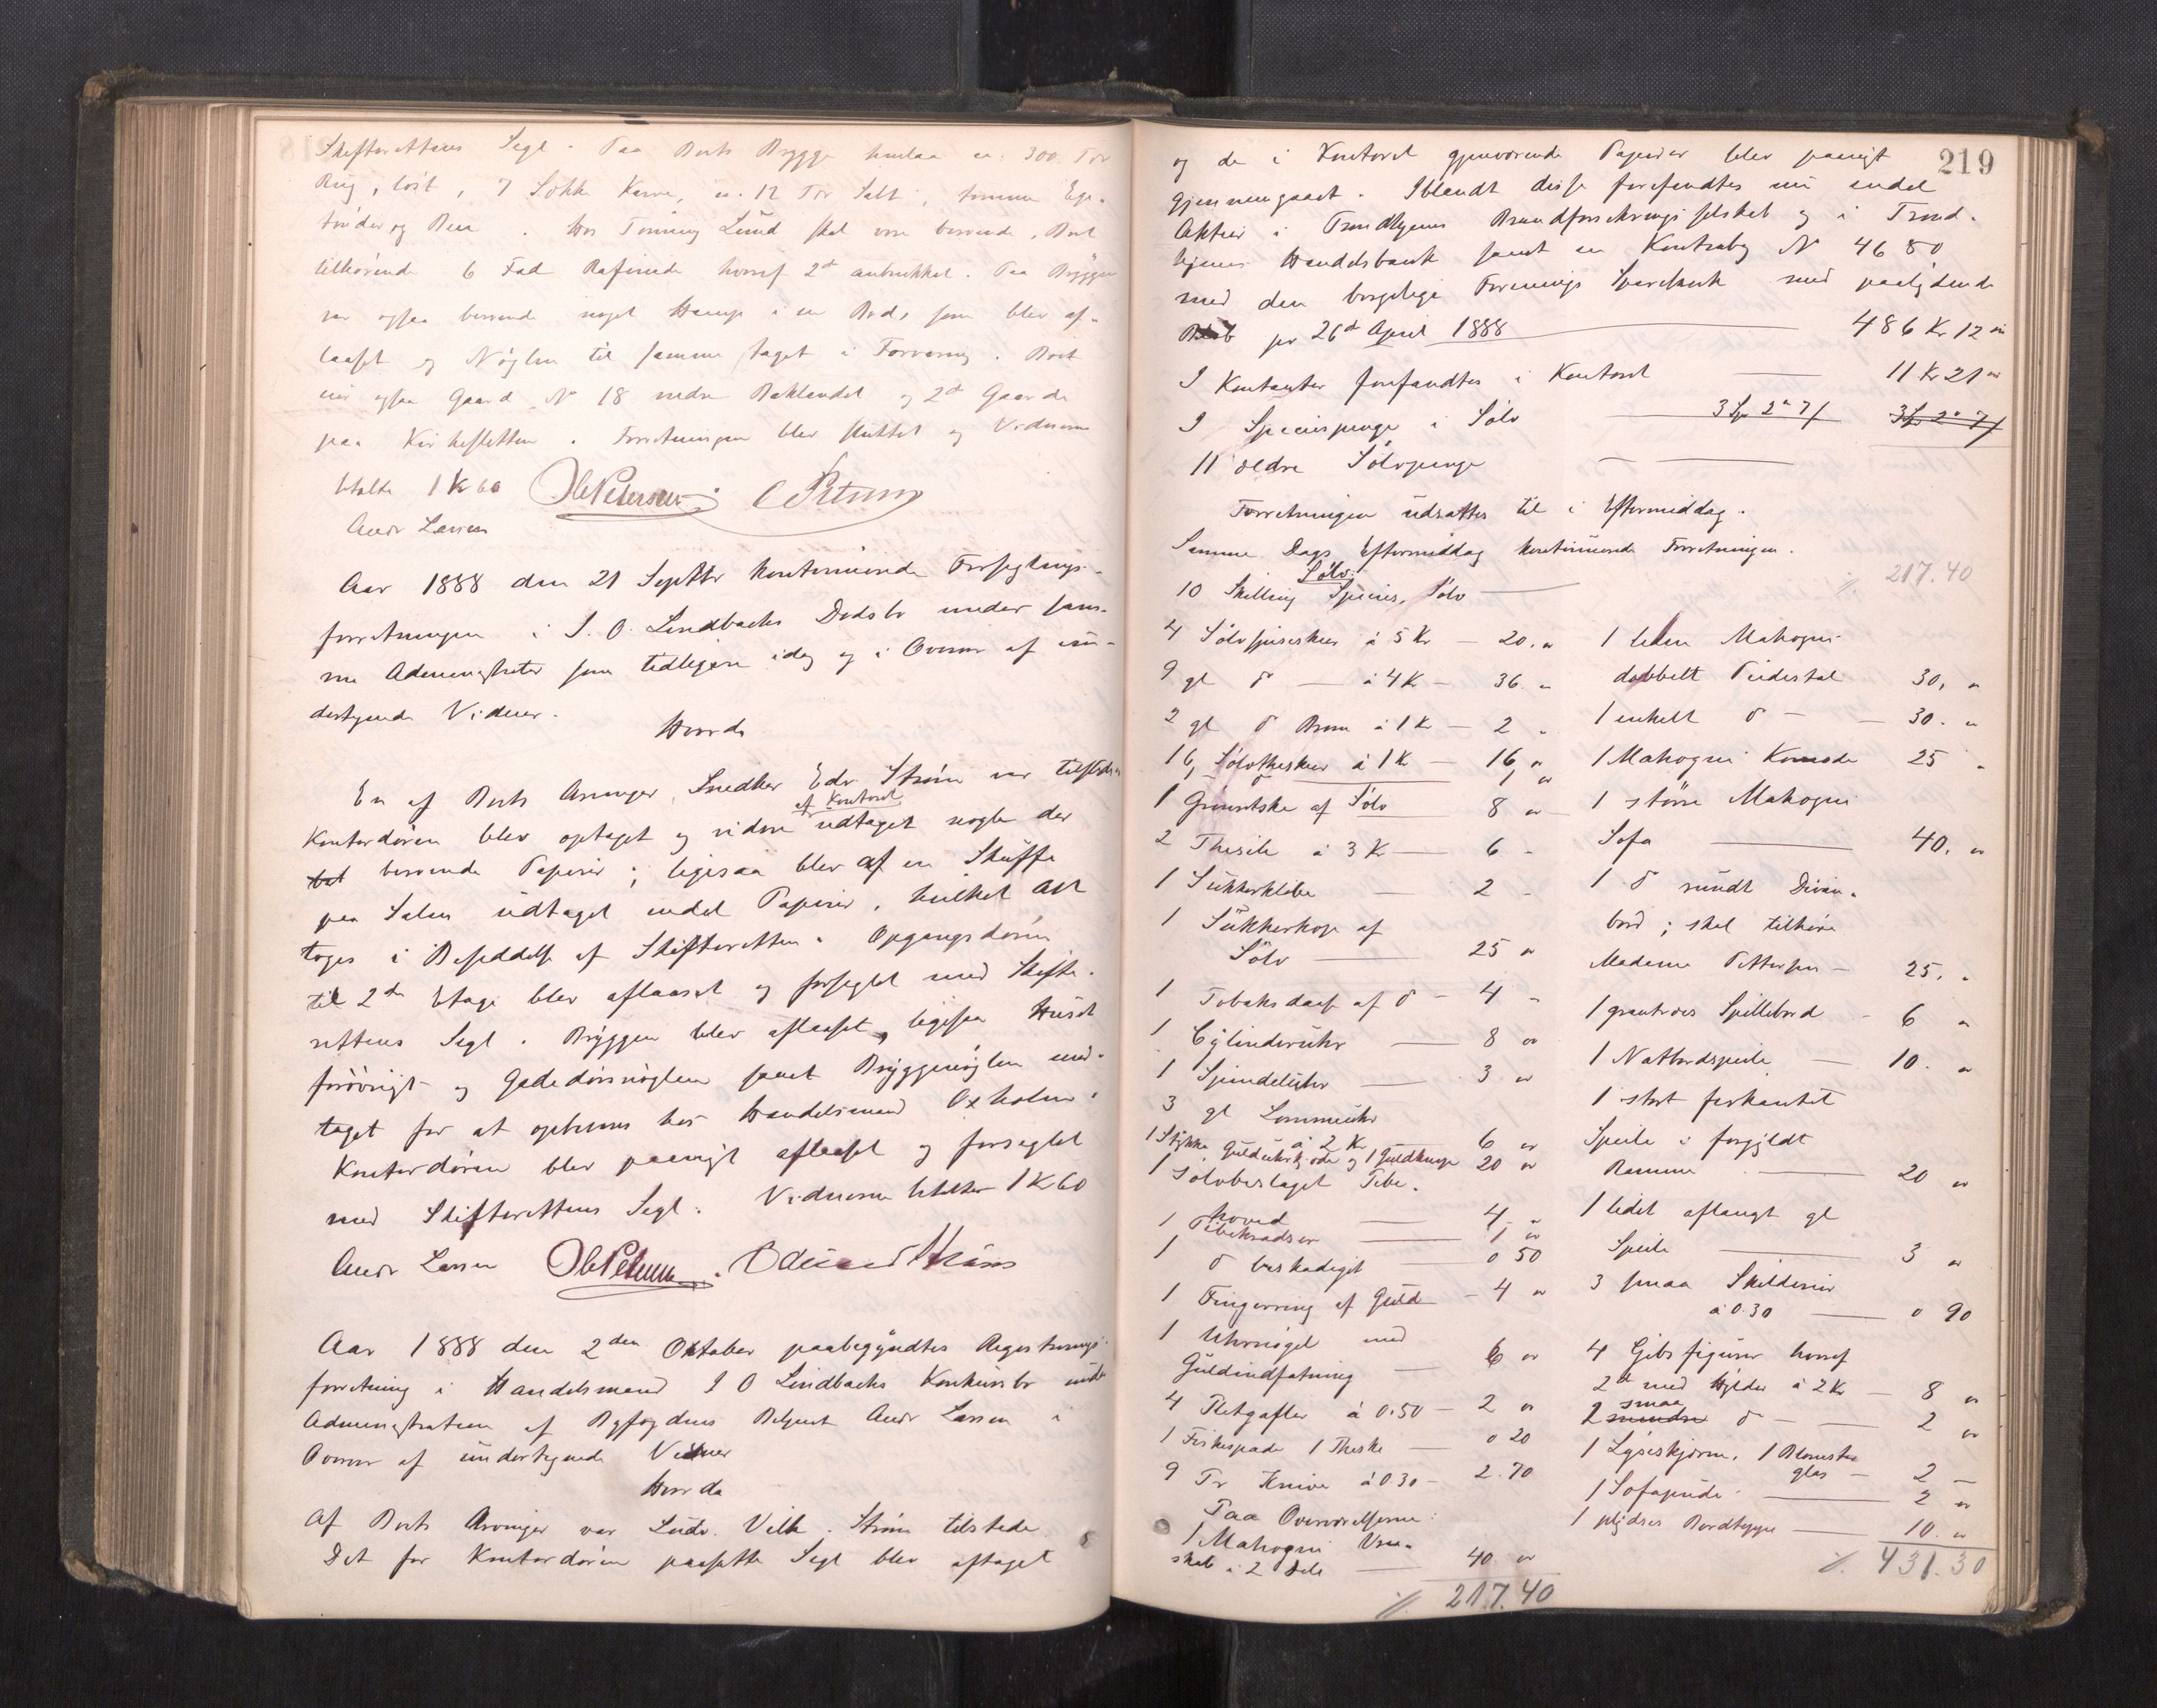 Skifterettens Segl. Paa Boets Brygge henlaa ca. 300 Tdr
Rug, löst, 7 Sække Karve, ca. 12 Tdr Salt, tomme Ege-
tönder og Been. Hos Tönning Lund skal være beroende, Boet
tilhörende 6 Fad Rafinade hvoraf 2de anbrukket. Paa Bryggen
var ogsaa beroende noget Hamp i en Bod, som blev af-
laaset og Nöglen til samme taget i Forvaring. Boet
eier ogsaa Gaard No 18 nedre Baklandet og 2de Gaarde
paa Kirkesletten. Forretningen blev sluttet og Vidnerne
betalte 1 Kr 60 Ole Petersen C Petersen
Andr Larsen
Aar 1888 den 21 Septbr kontinuerede Forseglings-
forretningen i J. O. Lindbacks Dödsbo under sam-
me Administrator som tidligere idag og i Overvær af un-
dertegnede Vidner.
Hvorda
En af Boets Arvinger, Snedker Edv. Ström var tilstede
Kontordören blev optaget og videre af Kontoret udtaget nogle der
beroende Papirer; ligesaa blev af en Skuffe
paa Salen udtaget endel Papirer, hvilket Alt
toges i Besiddelse af Skifteretten. Opgangsdören
til 2den Etage blev aflaaset og forseglet med Skifte-
rettens Segl. Bryggen blev aflaaset, ligesaa Huset
forövrigt og Gadedörsnöglen samt Bryggenöglen med-
taget for at opbevares hos Handelsmand Oxholm.
Kontordören blev paanyt aflaaset og forseglet
med Skifterettens Segl. Vidnerne betaltes 1 Kr 60
Andr Larsen Ole Petersen. Edvard Ström
Aar 1888 den 2den Oktober paabegyndtes Registrerings-
forretning i Handelsmand J O Lindbacks Konkursbo under
Administration af Byfogdens Betjent Andr Larsen i
Overvær af undertegnede Vidner
Hvorda
Af Boets Arvinger var Ludv. Vilh. Ström tilstede
Det for Kontordören paasatte Segl blev aftaget
219
og de i Kontoret gjenværende Papirer blev paanyt
gjennemgaaet. Iblandt disse forefandtes nu endel
Aktier i Trondhjems Brandforsikringsselskab og i Trond-
hjems Handelsbank samt en Kontrabog No 4680
med den borgelige Forenings Sparebank med paalydende
pr 26de April 1888 486 Kr 12 öre
I Kontanter forefandtes i Kontoret 11 Kr 21 öre
I Speciespenge i Sölv 3 Sp 2 " 7 / 3 Sp 2 " 7 /
11 ældre Sölvpenge
Forretningen udsattes til i Eftermiddag.
Samme Dags Eftermiddag kontinuerede Forretningen.
Sölv:
10 Skilling Species, Sölv
4 Sölvspiseskeer á 5 Kr — 20. "
9 gl do — á 4 Kr — 36. "
2 gl do Börne á 1 Kr — 2 "
16 Sölvtheskeer á 1 Kr — 16 "
1 do 1 "
1 Grönsatske af Sölv 8 "
2 Thesile á 3 Kr — 6 "
1 Sukkerklibe — 2 "
1 Sukkerkop af
Sölv — 25 "
1 Tobaksdaase af do — 4 "
1 Cylinderuhr — 8 "
1 Spindeluhr — 3 "
3 gl Lommeuhr
á 2 Kr 6 "
1 Stykke Guldurkjæde og 1 Guldknap 20 "
1 Sölvbeslaget Pibe-
hoved — 4. "
1 Pibekradser — 1 "
1 do beskadiget — 0 50
1 Fingerring af Guld — 4 "
1 Uhrnögel med
Guldindfatning — 6 "
4 Pletgafler á 0.50 — 2 "
1 Fiskespade 1 Theske — 0 20
9 Pr Knive á 0 30 — 2.70
Paa Overværelserne:
1 Mahogni
skab i 2 Dele — 40. "
% 217.40
% 217.40
1 liden Mahogni
dobbelt Piedestal 30, "
1 enkelt do — 30. "
1 Mahogni Komode 25 "
1 större Mahogni
Sofa — 40. "
1 do rundt Divan-
bord; skal tilhöre
Madame Pettersen — 25. "
1 grantræes Spillebord — 6 "
1 Natbordspeile — 10. "
1 stort firkantet
Speile i forgyldt
Ramme — 20 "
1 lidet aflangt gl
Speile — 3 "
3 smaa Skilderier
á 0.30 — 0 90
4 Gibsfigurer hvoraf
2de med Hylder á 2 Kr — 8 "
2 smaa mindre do — 2 "
1 Lyseskjerm, 1 Blomster
glas — 2 —
1 Sofapude — 2 "
1 plydses Bordteppe — 10. "
% 431.30